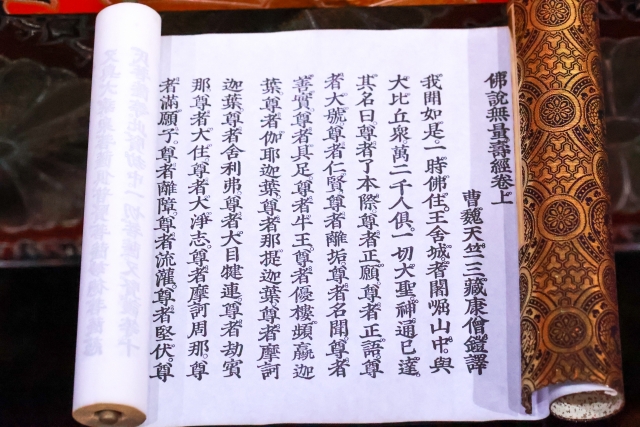 佛說無量壽經卷上
曹魏天竺三藏康僧鎧譯
我聞如是。一時佛住。王舍城耆闍崛山中。與
大比丘衆萬二千人俱。一切大聖。神通已達。
其名曰尊者了本際。尊者正願。尊者正語。尊
者大號。尊者仁賢。尊者離垢。尊者名聞。尊者
善實。尊者具足。尊者牛王。尊者優樓頻蠃迦
葉。尊者伽耶迦葉。尊者那提迦葉。尊者摩訶
迦葉。尊者舍利弗。尊者大目犍連。尊者劫賓
那。尊者大住。尊者大淨志。尊者摩訶周那。尊
者滿願子。尊者離障。尊者流灌。尊者堅伏。尊